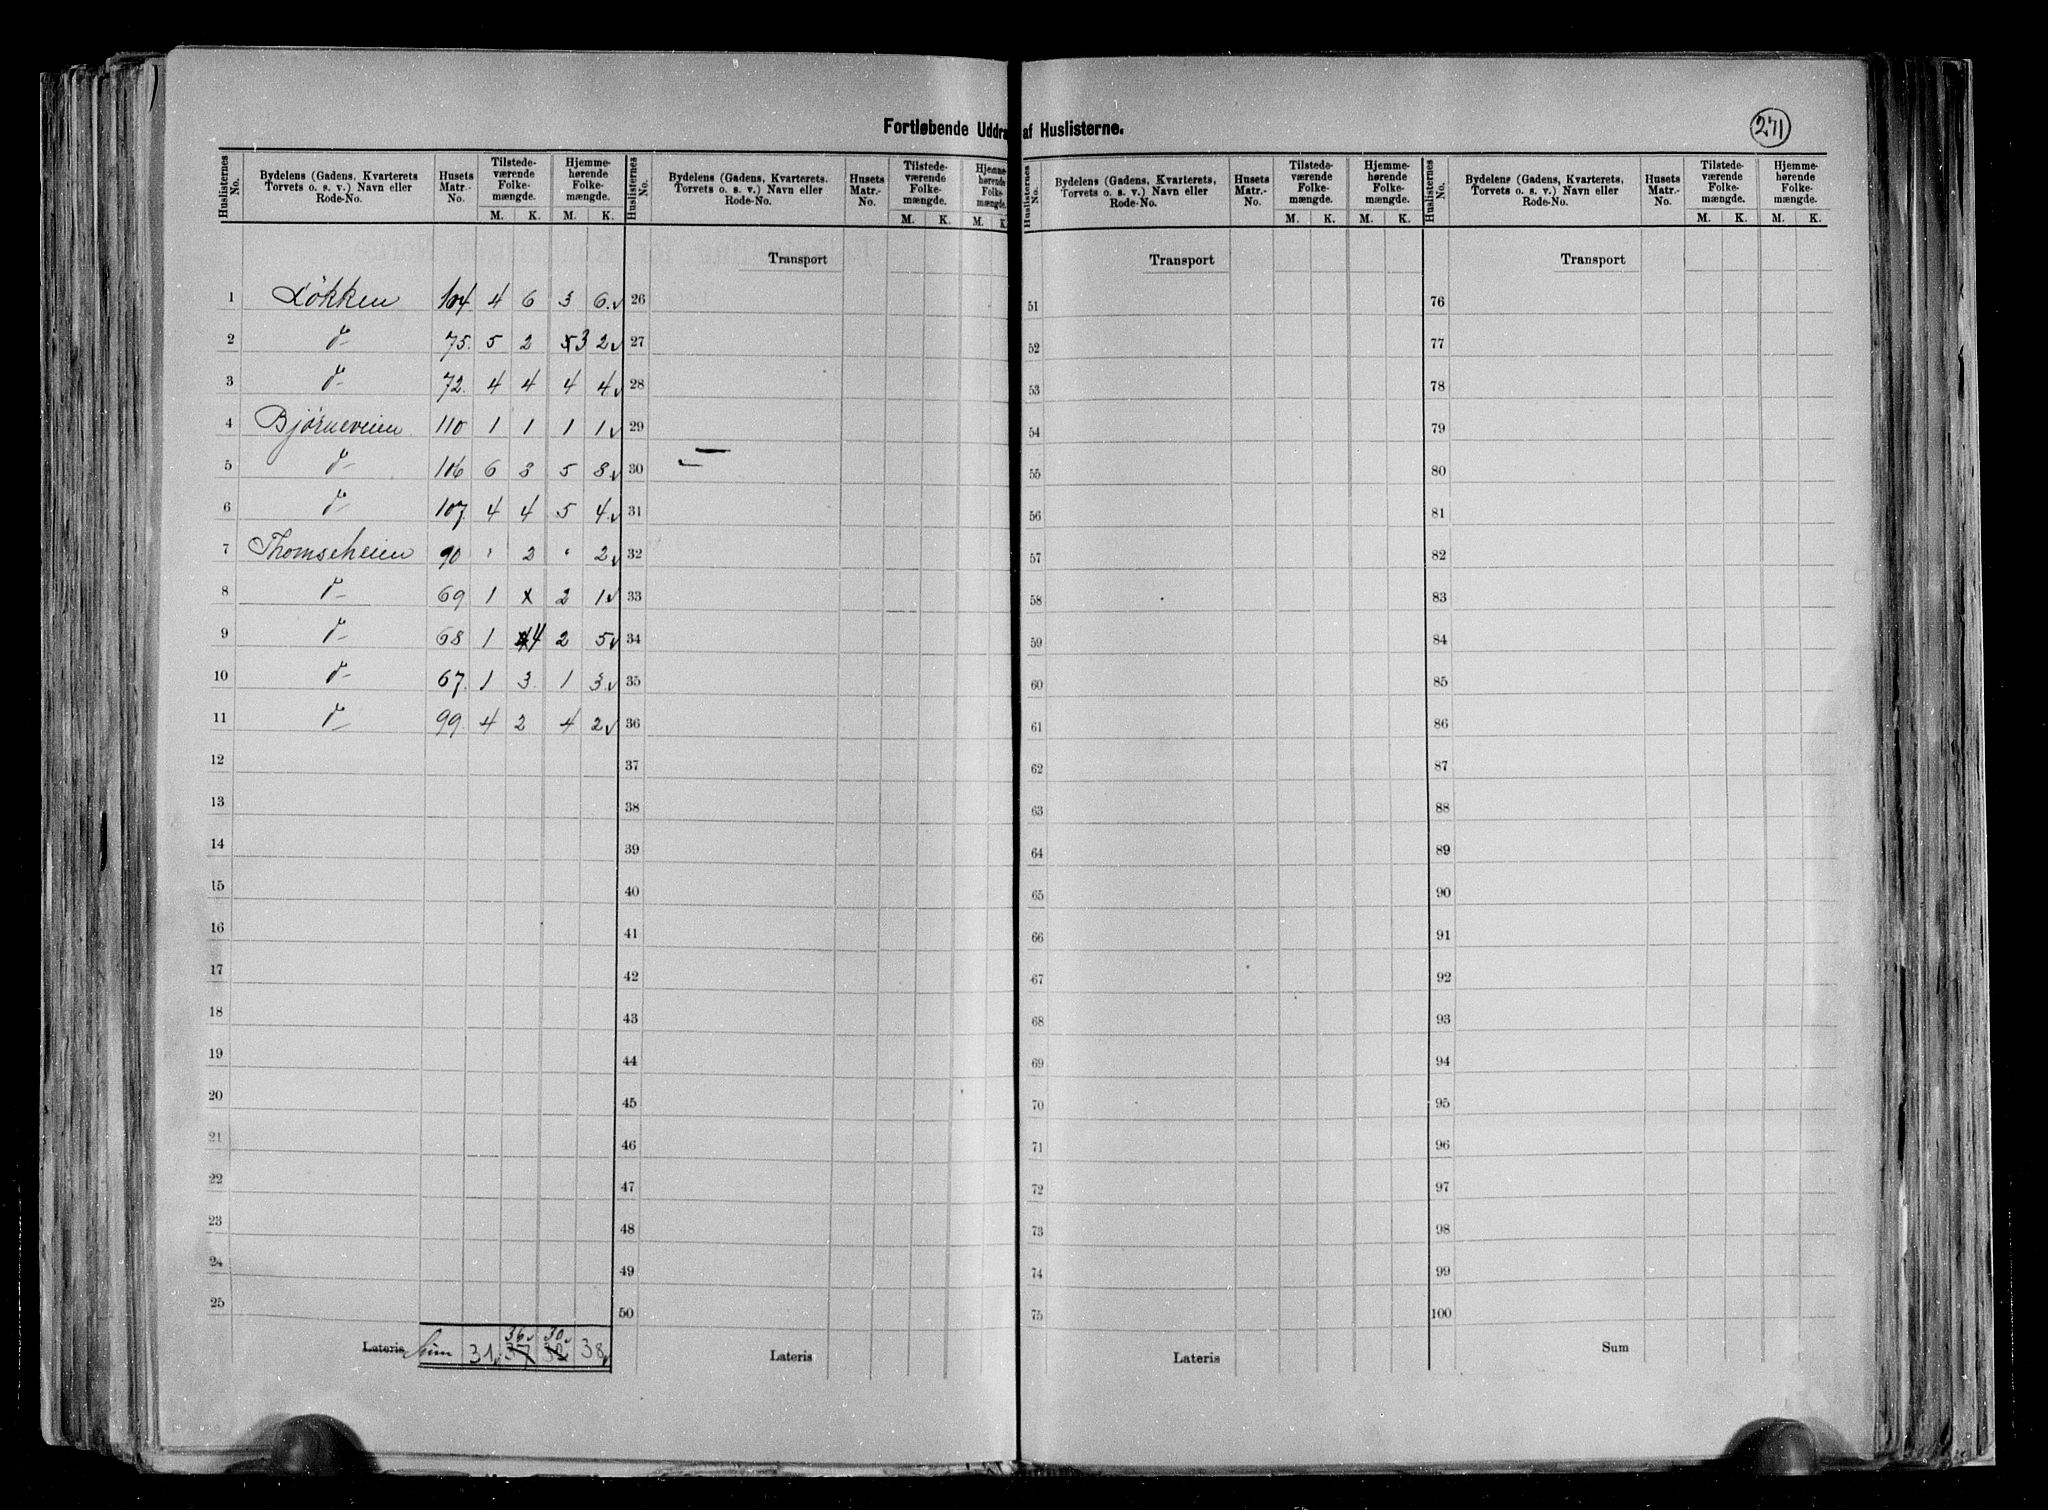 271
Fortløbende Uddra af Huslisterne.
Huslisternes No. | Bydelens (Gadens, Kvarterets Torvets o. s. v.) Navn eller Rode-No. | Husets Matr.-No. | Tilstede-værende Folke-mængde. M. K. | Hjemme-hørende Folke-mængde. M. K. | Huslisternes No. | Bydelens (Gadens, Kvarterets, Torvets o. s. v.) Navn eller Rode-No. | Husets Matr.-No. | Tilstede-værende Folke-mængde. M. K. | Hjemme-hørende Folke-mængde. M. K. | Huslisternes No. | Bydelens (Gadens, Kvarterets, Torvets o. s. v.) Navn eller Rode-No. | Husets Matr.-No. | Tilstede-værende Folke-mængde. M. K. | Hjemme-hørende Folke-mængde. M. K. | Huslisternes No. | Bydelens (Gadens, Kvarterets, Torvets o. s. v.) Navn eller Rode-No. | Husets Matr.-No. | Tilstede-værende Folke-mængde. M. K. | Hjemme-hørende Folke-mængde. M. K.
Transport Transport Transport
1 Løkken 104 4 6 3 6 26 51 76
2 d- 75. 5 2 5 3 2 27 52 77
3 d- 72. 4 4 4 4 28 53 78
4 Bjørneveien 110 1 1 1 1 29 54 79
5 d- 106 6 8 5 8 30 55 80
6 d- 107. 4 4 5 4 31 56 81
7 Thomseheien 90 " 2 " 2 32 57 82
8 d- 69 1 x 2 1 33 58 83
9 d- 68 1 4 2 5 34 59 84
10 d- 67. 1 3. 1 3 35 60 85
11 d- 99. 4 2 4 2 36 61 86
12 37 62 87
13 38 63 88
14 39 64 89
15 40 65 90
16 41 66 91
17 42 67 92
18 43 68 93
19 44 69 94
20 45 70 95
21 46 71 96
22 47 72 97
23 48 73 98
24 49 74 99
25 50 75 100
36 30
Lateris Sum 31 37 32 38 Lateris Lateris Sum